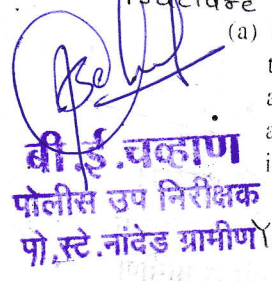 (a)
बी.ई.चव्हाण
पोलीस उप निरीक्षक
पो.स्टे.नांदेड ग्रामीण